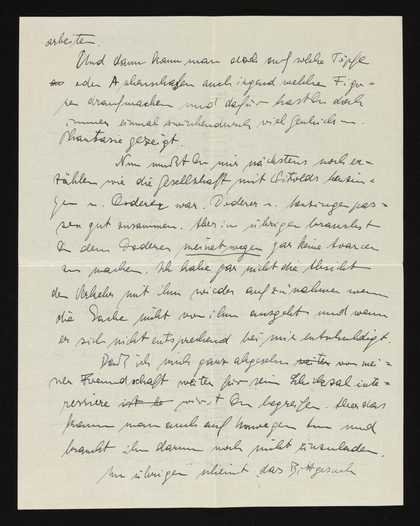 arbeiten.
Und dann kann man doch auf solche Töpfe
oder Aschenschalen auch irgend welchen Figu-
ren draufmachen und dafür hast Du doch
immer einmal
Phantasie gezeigt.
Nun musst Du mir nächstens noch er-
zählen wie die Gesellschaft mit
gen u. Doderer war. Doderer u. pas-
sen gut zusammen. Aber im übrigen brauchst
Du dem Doderer meinetwegen gar keine
zu machen. Ich habe gar nicht die Absicht
den Verkehr mit ihm wieder aufzunehmen wenn
die Sache nicht von ihm ausgeht und wenn
er sich nicht entsprechend bei mir entschuldigt.
Daß ich mich ganz abgesehen von mei-
ner Freundschaft weiter für sein Schicksal inte-
ressiere wirst Du begreifen. Aber das
kann man auch auf Umwegen tun und
braucht ihn darum noch nicht einzuladen.
Im übrigen scheint das Bittgesuch